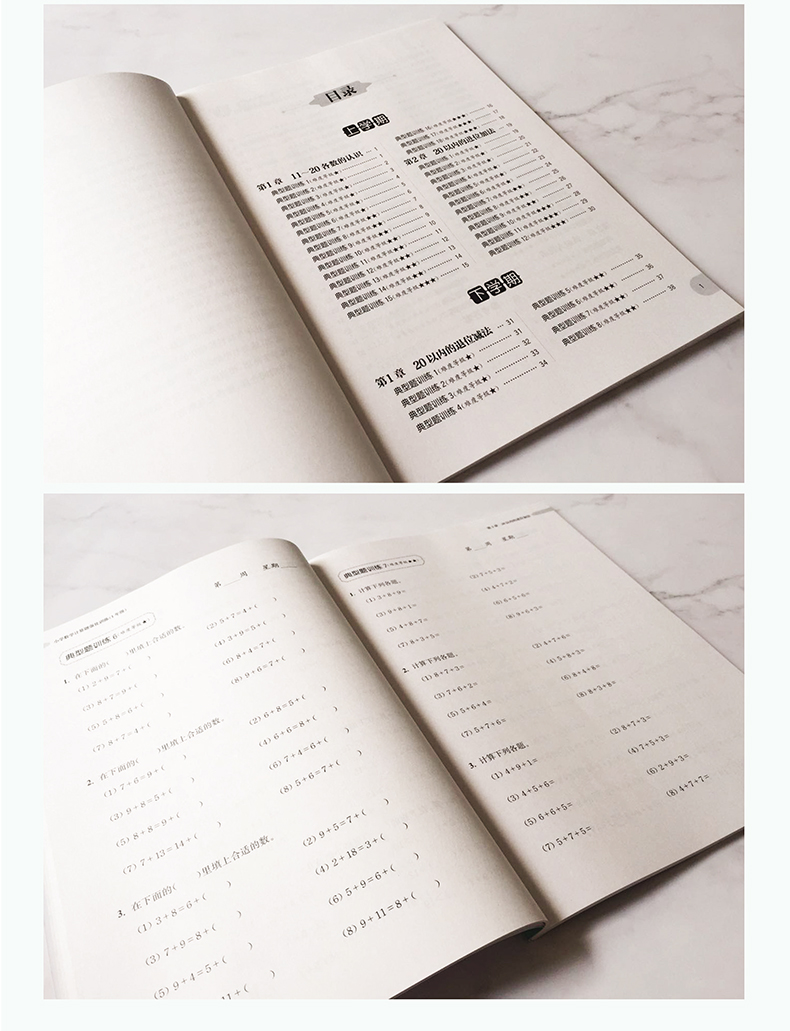 目录
上学期
第1章 11~20各数的认识 … 1
典型题训练 1(难度等级★) 2
典型题训练 2(难度等级★) 3
典型题训练 3(难度等级★)
典型题训练 4(难度等级★)
典型题训练 5(难度等级★)
典型题训练 6(难度等级★) 7
典型题训练 7(难度等级★★) 8
典型题训练 8(难度等级★★) 9
典型题训练 9(难度等级★★) 10
典型题训练 10(难度等级★★) 11
典型题训练 11(难度等级★★) 12
典型题训练 12(难度等级★★) 13
典型题训练 13(难度等级★★) 14
典型题训练 14(难度等级★★★) 15
典型题训练 15(难度等级★★★)
典型题训练 16(难度等级★★★) 16
典型题训练 17(难度等级★★★) 17
典型题训练 18(难度等级★★★) 18
第2章 20以内的进位加法 19
典型题训练 1(难度等级★) 20
典型题训练 2(难度等级★) 21
下学期
第1章 20以内的退位减法 … 31
典型题训练 1(难度等级★) 31
典型题训练 2(难度等级★) 32
典型题训练 3(难度等级★) 33
典型题训练 4(难度等级★) 34
典型题训练 5(难度等级★★) 35
典型题训练 6(难度等级★★) 36
典型题训练 7(难度等级★★) 37
典型题训练 8(难度等级★★) 38
1
第 周 星期
典型题训练 6(难度等级★)
1. 在下面的( )里填上合适的数。
(1) 2+9=7+( ) (2) 5+7=4+( )
(3) 8+7=9+( ) (4) 3+9=5+( )
(5) 5+8=6+( ) (6) 8+4=7+( )
(7) 8+7=4+( ) (8) 9+6=7+( )
2. 在下面的( )里填上合适的数。
(1) 7+6=9+( ) (2) 6+8=5+( )
(3) 9+8=5+( ) (4) 6+6=8+( )
(5) 8+8=9+( ) (6) 7+4=6+( )
(7) 7+13=14+( ) (8) 5+6=7+( )
3. 在下面的( )里填上合适的数。
(1) 3+8=6+( ) (2) 9+5=7+( )
(3) 7+9=8+( ) (4) 2+18=3+( )
(5) 9+4=5+( ) (6) 5+9=6+( )
(8) 9+11=8+( )
第 周 星期
典型题训练 7(难度等级★★)
1. 计算下列各题。
(1) 3+8+9= (2) 7+5+3=
(3) 9+8+1= (4) 4+7+2=
(5) 4+8+7= (6) 6+5+6=
(7) 8+3+5=
2. 计算下列各题。
(1) 8+7+3= (2) 4+7+6=
(3) 7+6+2= (4) 5+8+3=
(5) 5+6+4= (6) 8+4+8=
(7) 5+7+6= (8) 8+3+8=
3. 计算下列各题。
(1) 4+9+1= (2) 8+7+3=
(3) 4+5+6= (4) 7+5+3=
(5) 6+6+5= (6) 2+9+3=
(7) 5+7+5= (8) 4+7+7=